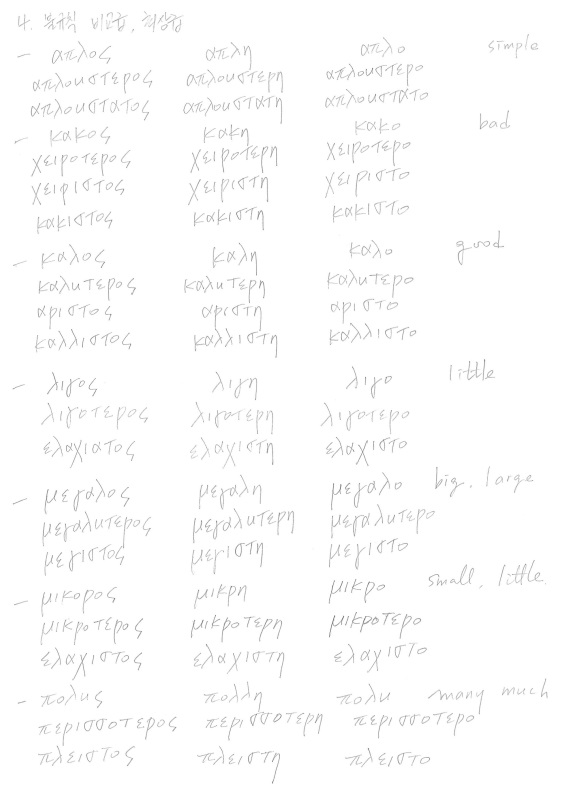 4. 불규칙 비교급, 최상급
- απλος απλη απλο simple
απλουστερος απλουστερη απλουστερο
απλουστατος απλουστατη απλουστατο
- κακος κακη κακο bad
χειροτερος χειροτερη χειροτερο
χειριστος χειριστη χειριστο
κακιστος κακιστη κακιστο
- καλος καλη καλο good
καλυτερος καλυτερη καλυτερο
αριστος αριστη αριστο
καλλιστος καλλιστη καλλιστο
- λιγος λιγη λιγο little
λιγοτερος λιγοτερη λιγοτερο
ελαχιατος ελαχιστη ελαχιστο
- μεγαλος μεγαλη μεγαλο big, large
μεγαλυτερος μεγαλυτερη μεγαλυτερο
μεγιστος μεγιστη μεγιστο
- μικορος μικρη μικρο small, little.
μικροτερος μικροτερη μικροτερο
ελαχιστος ελαχιστη ελαχιστο
- πολυς πολλη πολυ many much
περισσοτερος περισσοτερη περισσοτερο
πλειστος πλειστη πλειστο